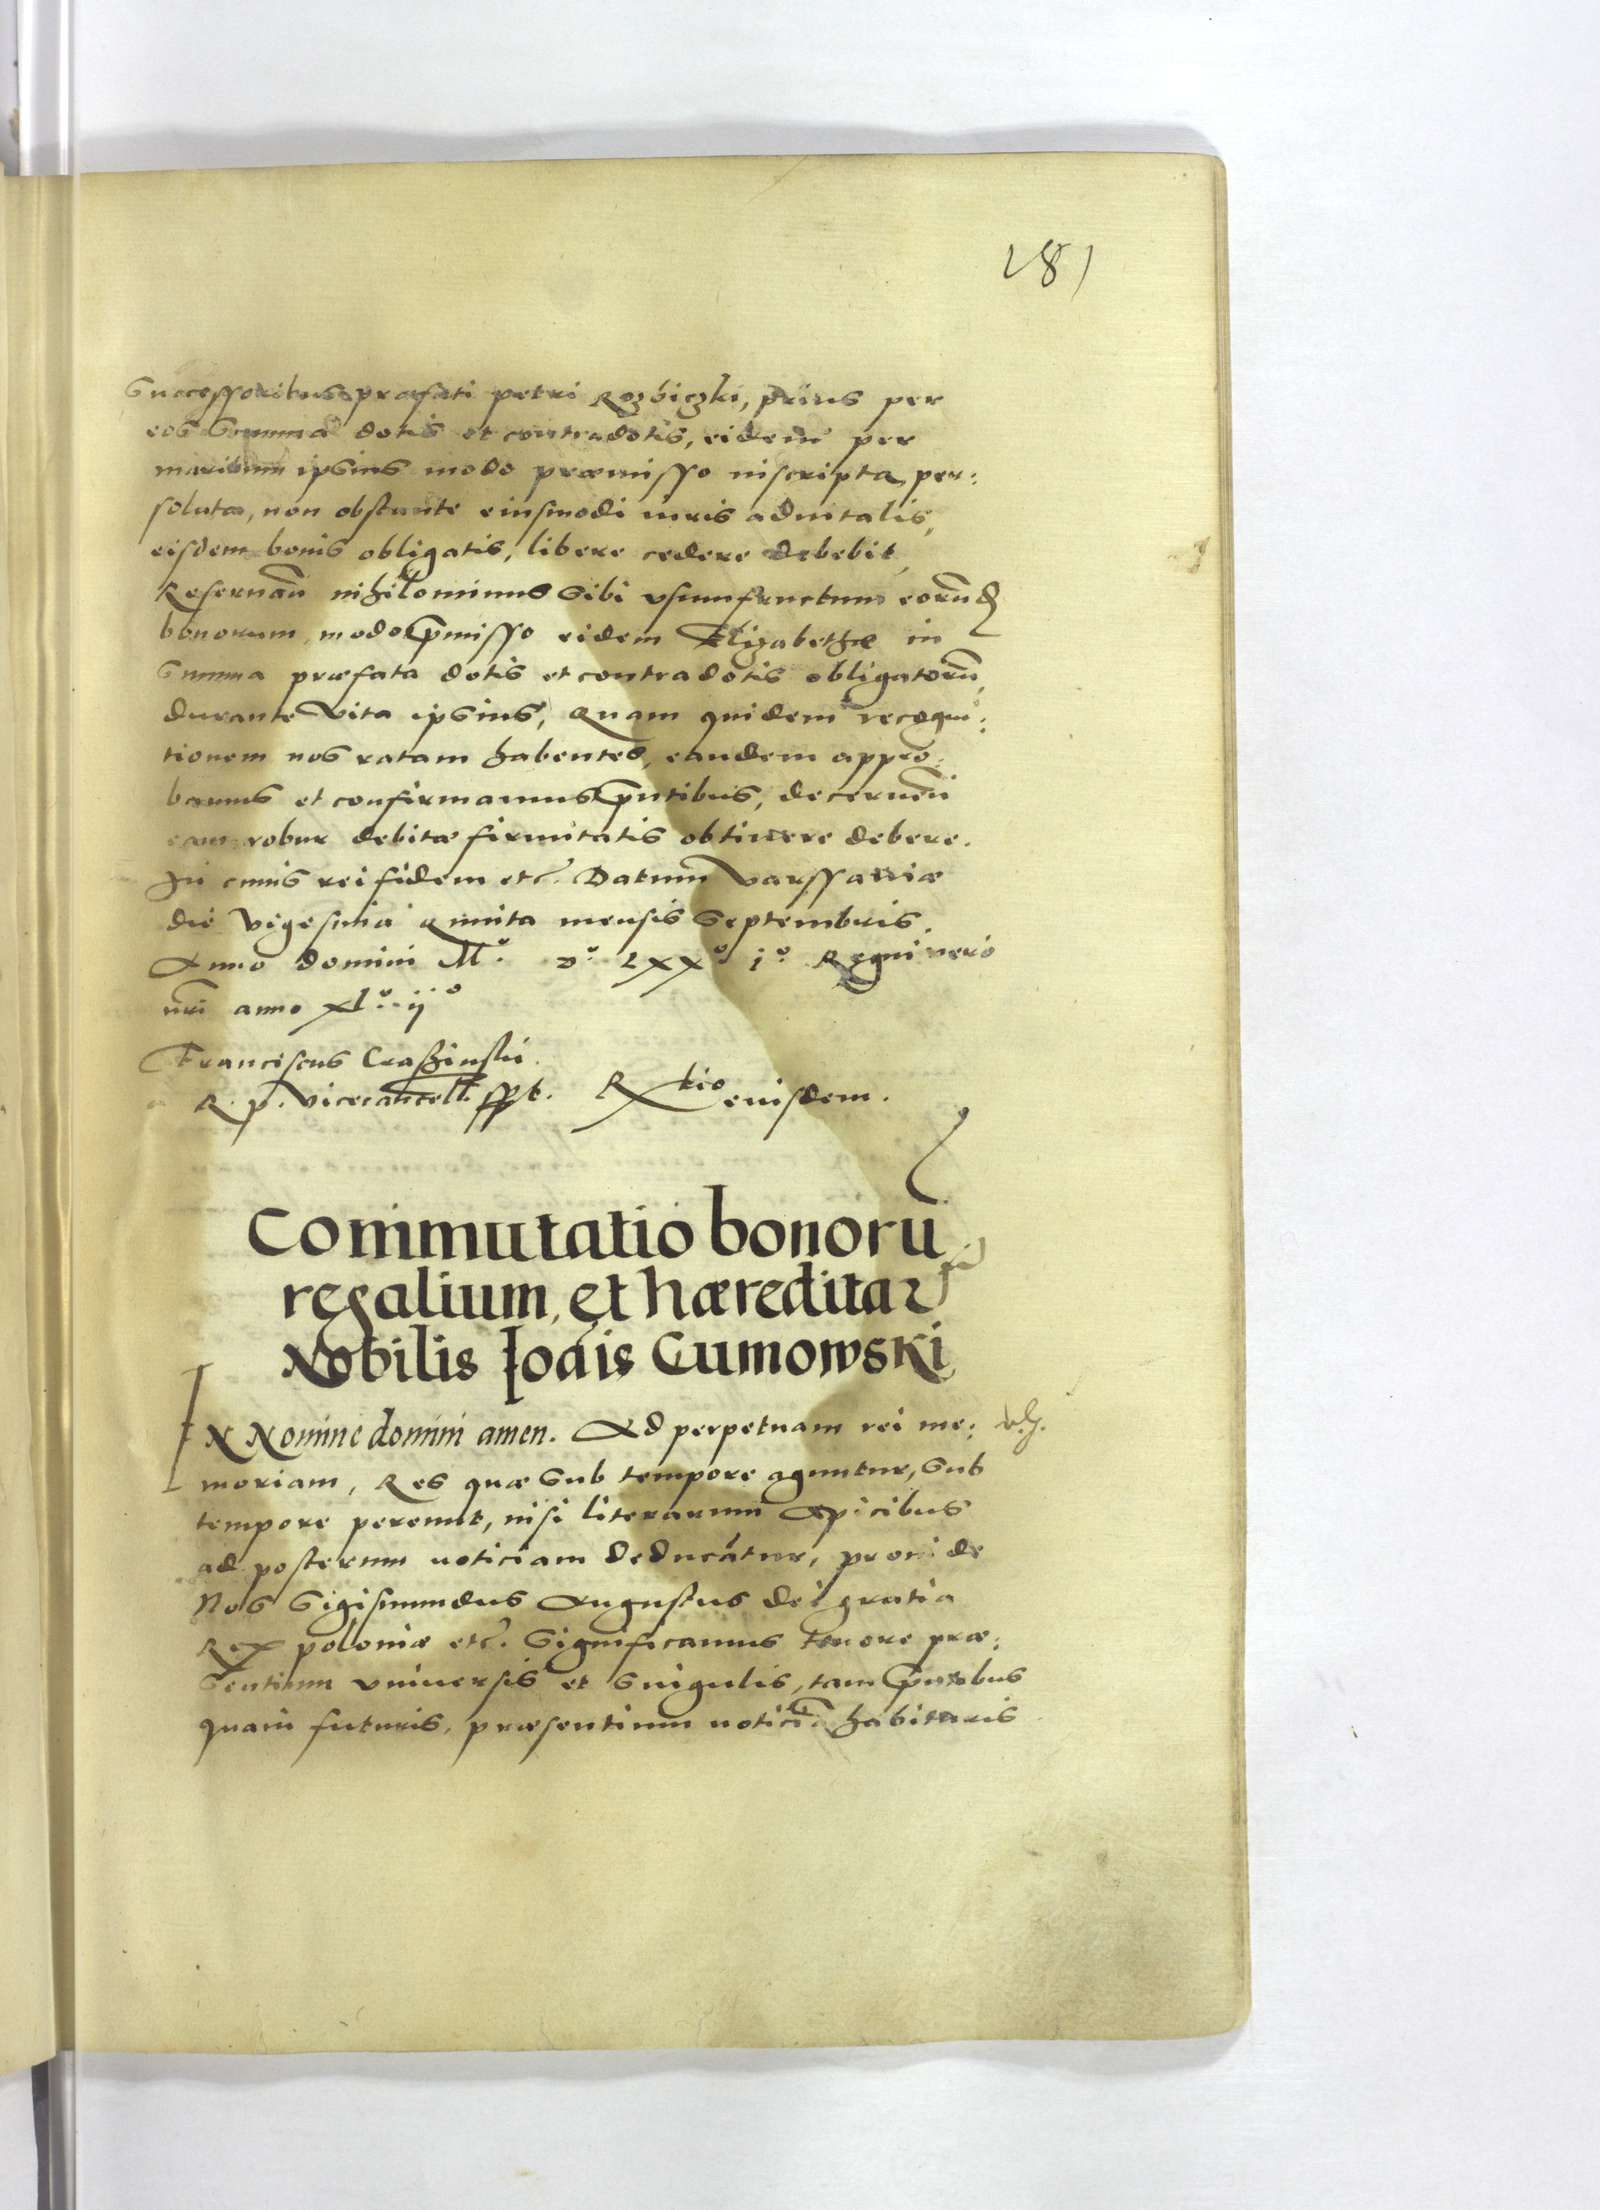 181
Successoribus præfati petri Rozbiczki, prius per
eos Summa dotis et contradotis, eidem per
maritum ipsius modo præmisso inscripta, per:
soluta, non obstante eiusmodi iuris aduitalis,
eisdem bonis obligatis, libere cedere debebit,
Reseruan̄ nihilominus sibi vsumfructum eorund̄
bonorum, modo p̄misso eidem Elizabethæ in
Summa præfata dotis et contradotis obligatorū,
durante Vita ipsius, Quam quidem recogni:
tionem nos ratam habentes, eandem appro:
bamus et confirmamus p̄ntibus, decernen̄
eam robur debitæ firmitatis obtinere debere.
In cuius rei fidem etc̄. Datum Varssawiæ
die vigesima quinta mensis Septembris.
Anno domini Mº Dº LXXº iº Regni vero
nr̄i anno xlº iiº
Franciscus Crasßinski
R. p. Vicecancell. sspt. Rtio eiusdem.
Commutatio bonorū
regalium, et hæreditar
Nobilis Ioāis Cumowski
IN Nomine domini amen. Ad perpetuam rei me:
moriam, Res quæ Sub tempore aguntur, Sub
tempore pereunt, nisi literarum Apicibus
ad posterum noticiam deducātur, proinde
Nos Sigismundus Augustus dei gratia
Rex poloniæ etc̄. Significamus tenore præ:
sentium vniuersis et singulis, tam p̄ntibus
quam futuris, præsentium noticiā habituris